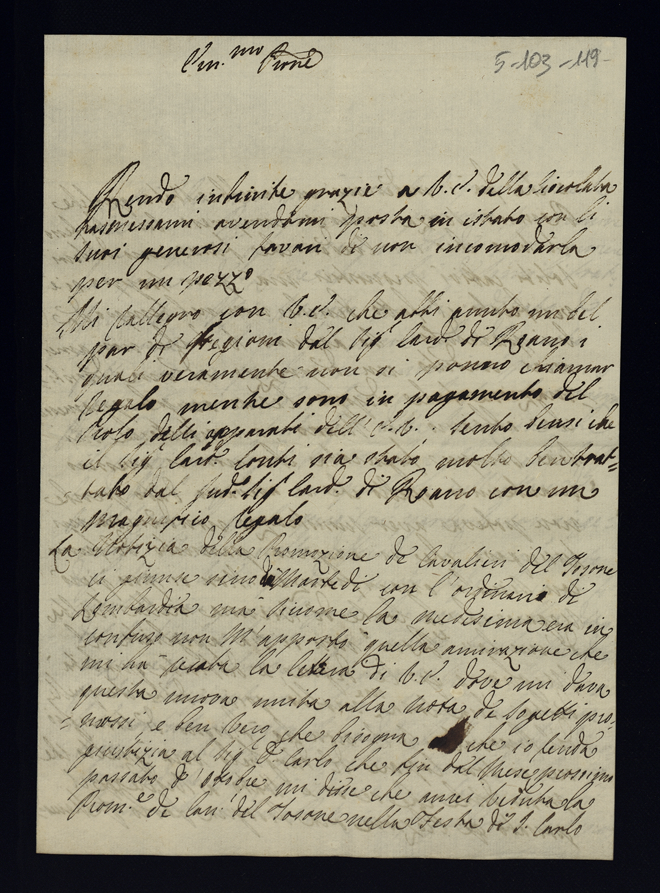 5-103-119
Em.mo Prone
Rendo infinite grazie a V.S. della Ciocolata
trasmessami avendomi posta in istato con li
suoi generosi favori di non incomodarla
per un pezzo
Mi rallegro con V.S. che abbi avuto un bel
par di Piccioni dal Sig Card. di Roano i
quali veramente non si ponno chiamar
Regalo mentre sono in pagamento del
Nolo delli apparati dell' sento bensi che
il Sig Card. Conti sia stato molto ben trat=
tato dal sud.o Sig Card. di Roano con un
magnifico regalo
La Notizia della Promozione de Cavalieri del Tosone
ci giunse sino da Martedi con l'ordinario di
Lombardia mà siccome la medesima era in
confuso non m'apportò quella amirazione che
mi hà recata la lettera di V.S. dove mi dava
questa nuova unita alla nota de sogetti pro,
=mossi, e ben vero che bisogna che io renda
giustizia al Sig D. Carlo che fin dal Mese prossimo
passato d' Ottobre mi disse che avrei veduta la
Prom.e de Cav.i del Tosone nella Festa di S. Carlo